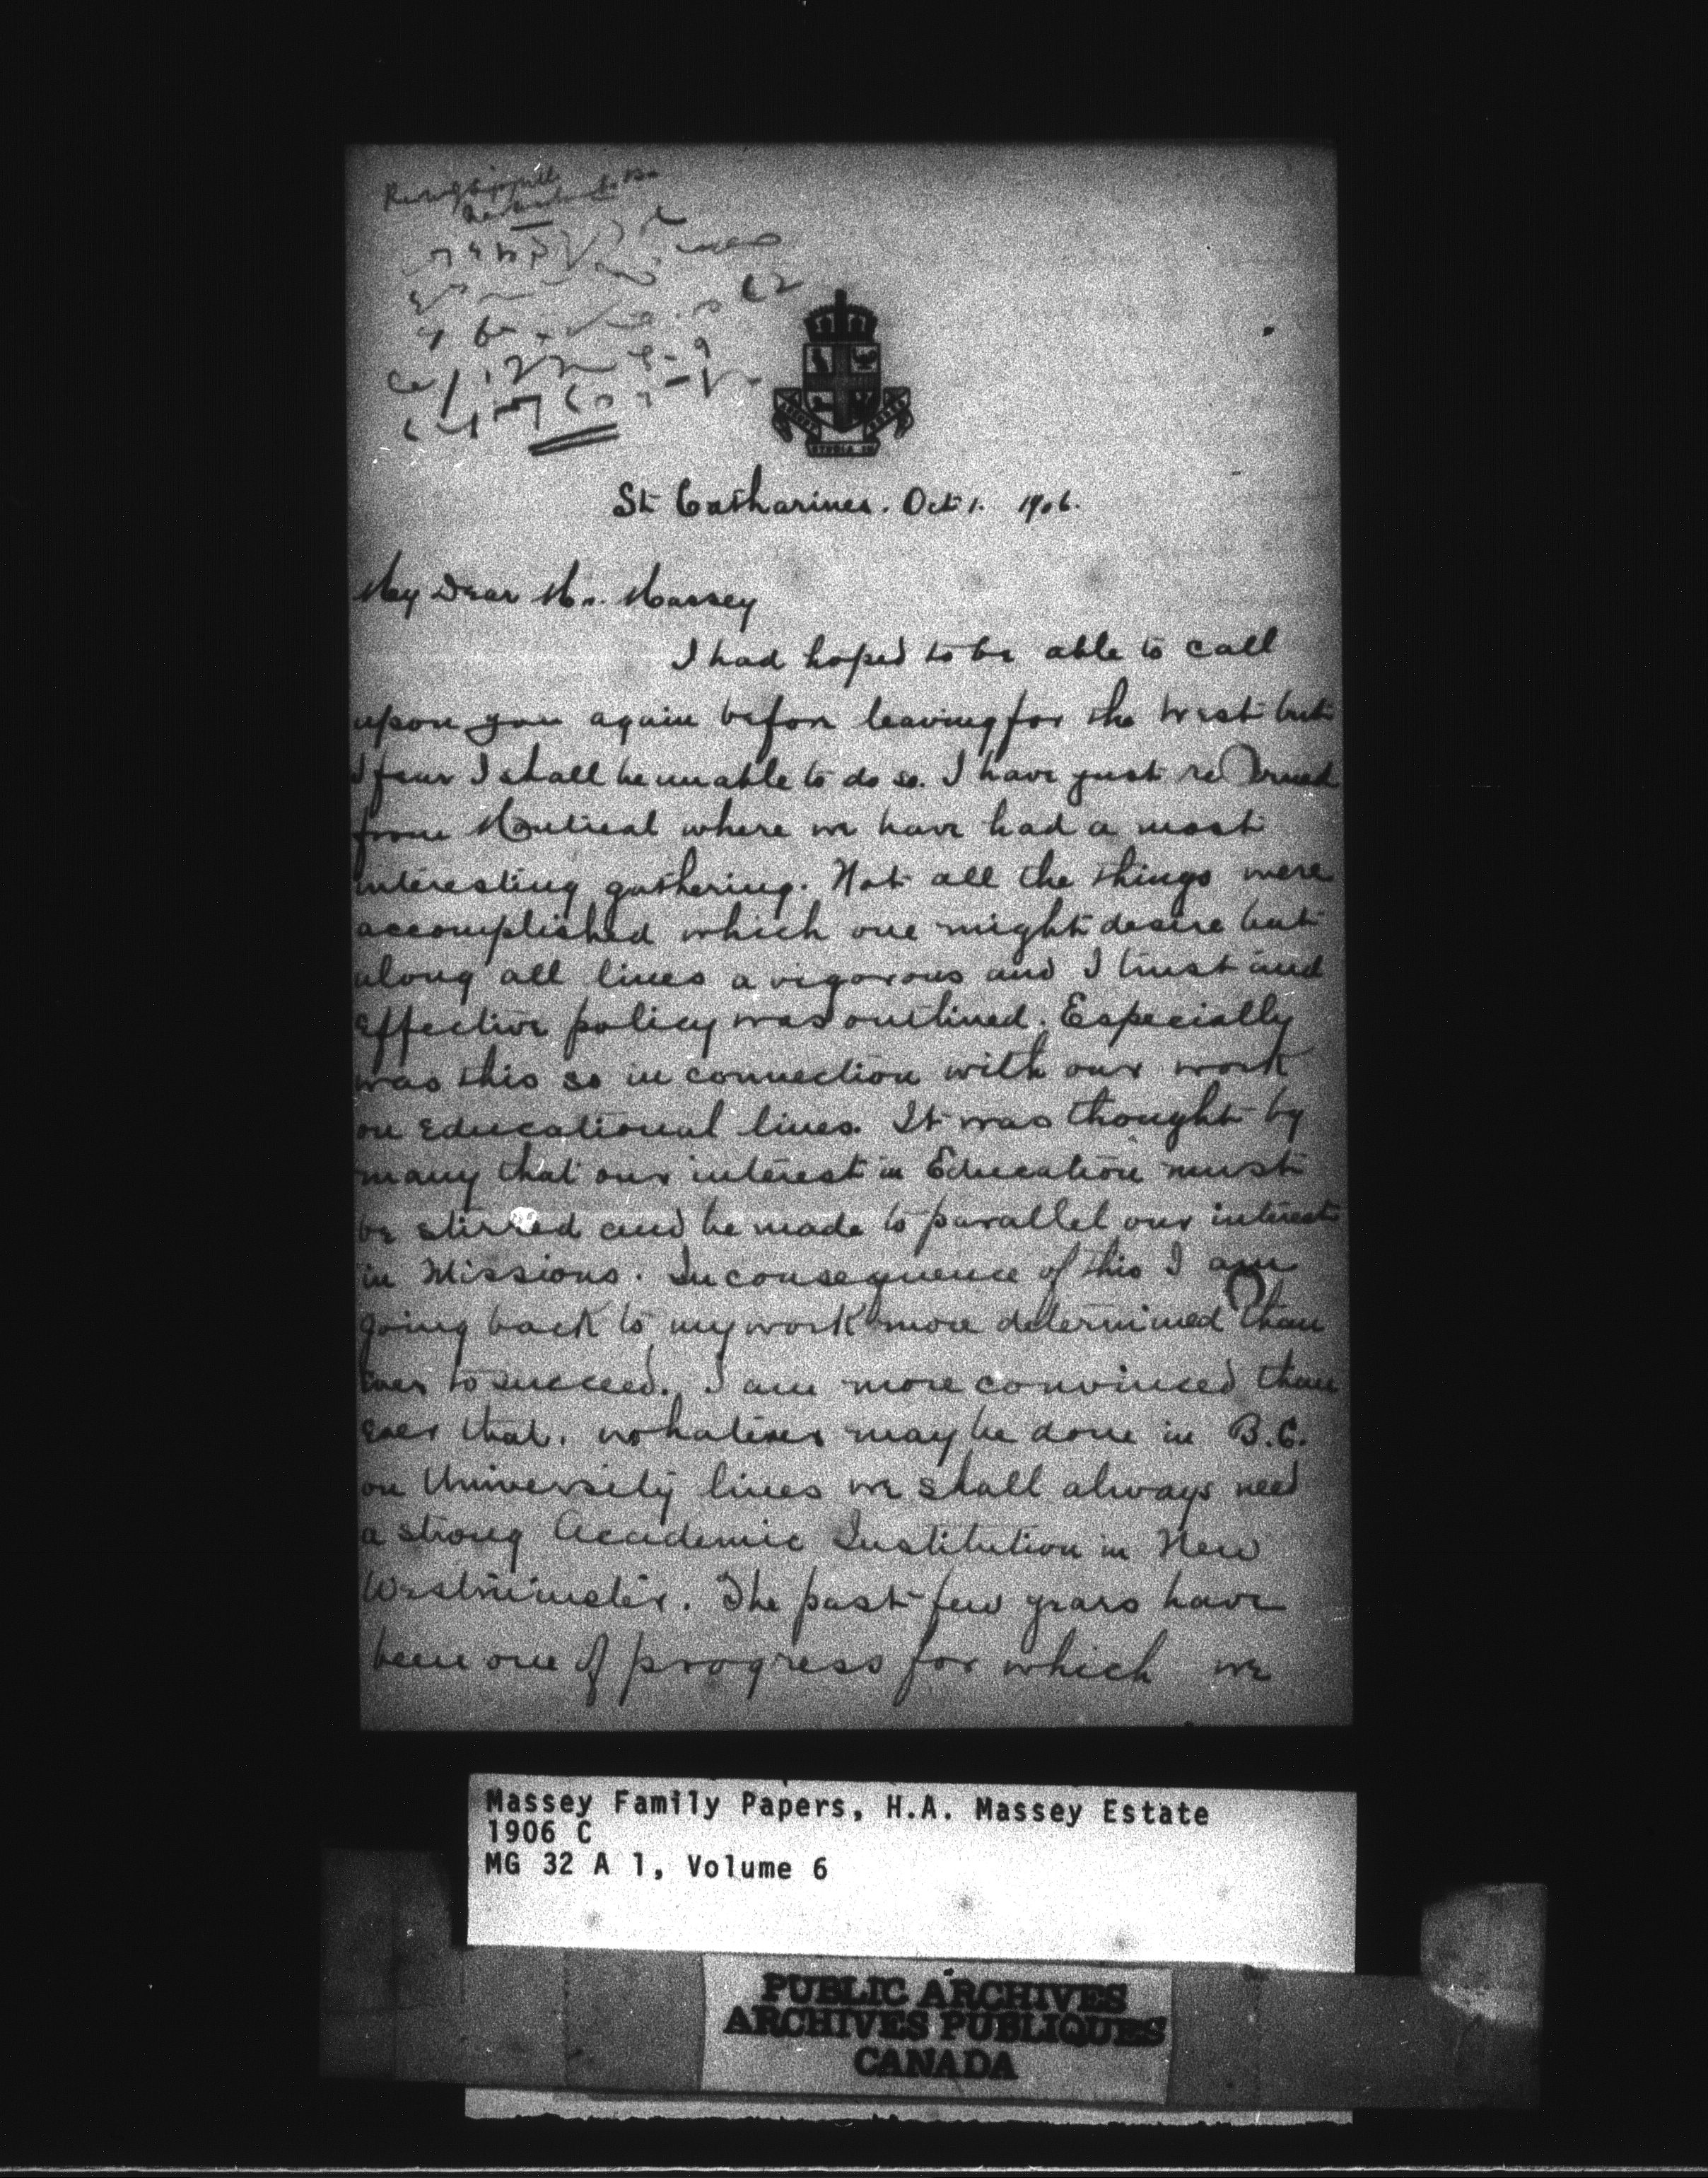 St Catharines. Oct 1. 1906.
My Dear Mr. Massey
I had hoped to be able to call
upon you again before leaving for the West but
I fear I shall be unable to do so. I have just returned
from Montreal where we have had a most
interesting gathering. Not all the things were
accomplished which one might desire but
along all lines a vigorous and I trust and
effective policy was outlined. Especially
was this so in connection with our work
on Educational lines. It was thought by
many that our interest in Education must
be stirred and be made to parallel our interests
in Missions. In consequence of this I am
going back to my work more determined than
ever to succeed. I am more convinced than
ever that. whatever may be done in B.C.
on University lines we shall always need
a strong Academic Institution in New
Westminster. The past few years have
been one of progress for which we
Massey Family Papers, H.A. Massey Estate
1906 C
MG 32 A 1, Volume 6
PUBLIC ARCHIVES
ARCHIVES PUBLIQUES
CANADA